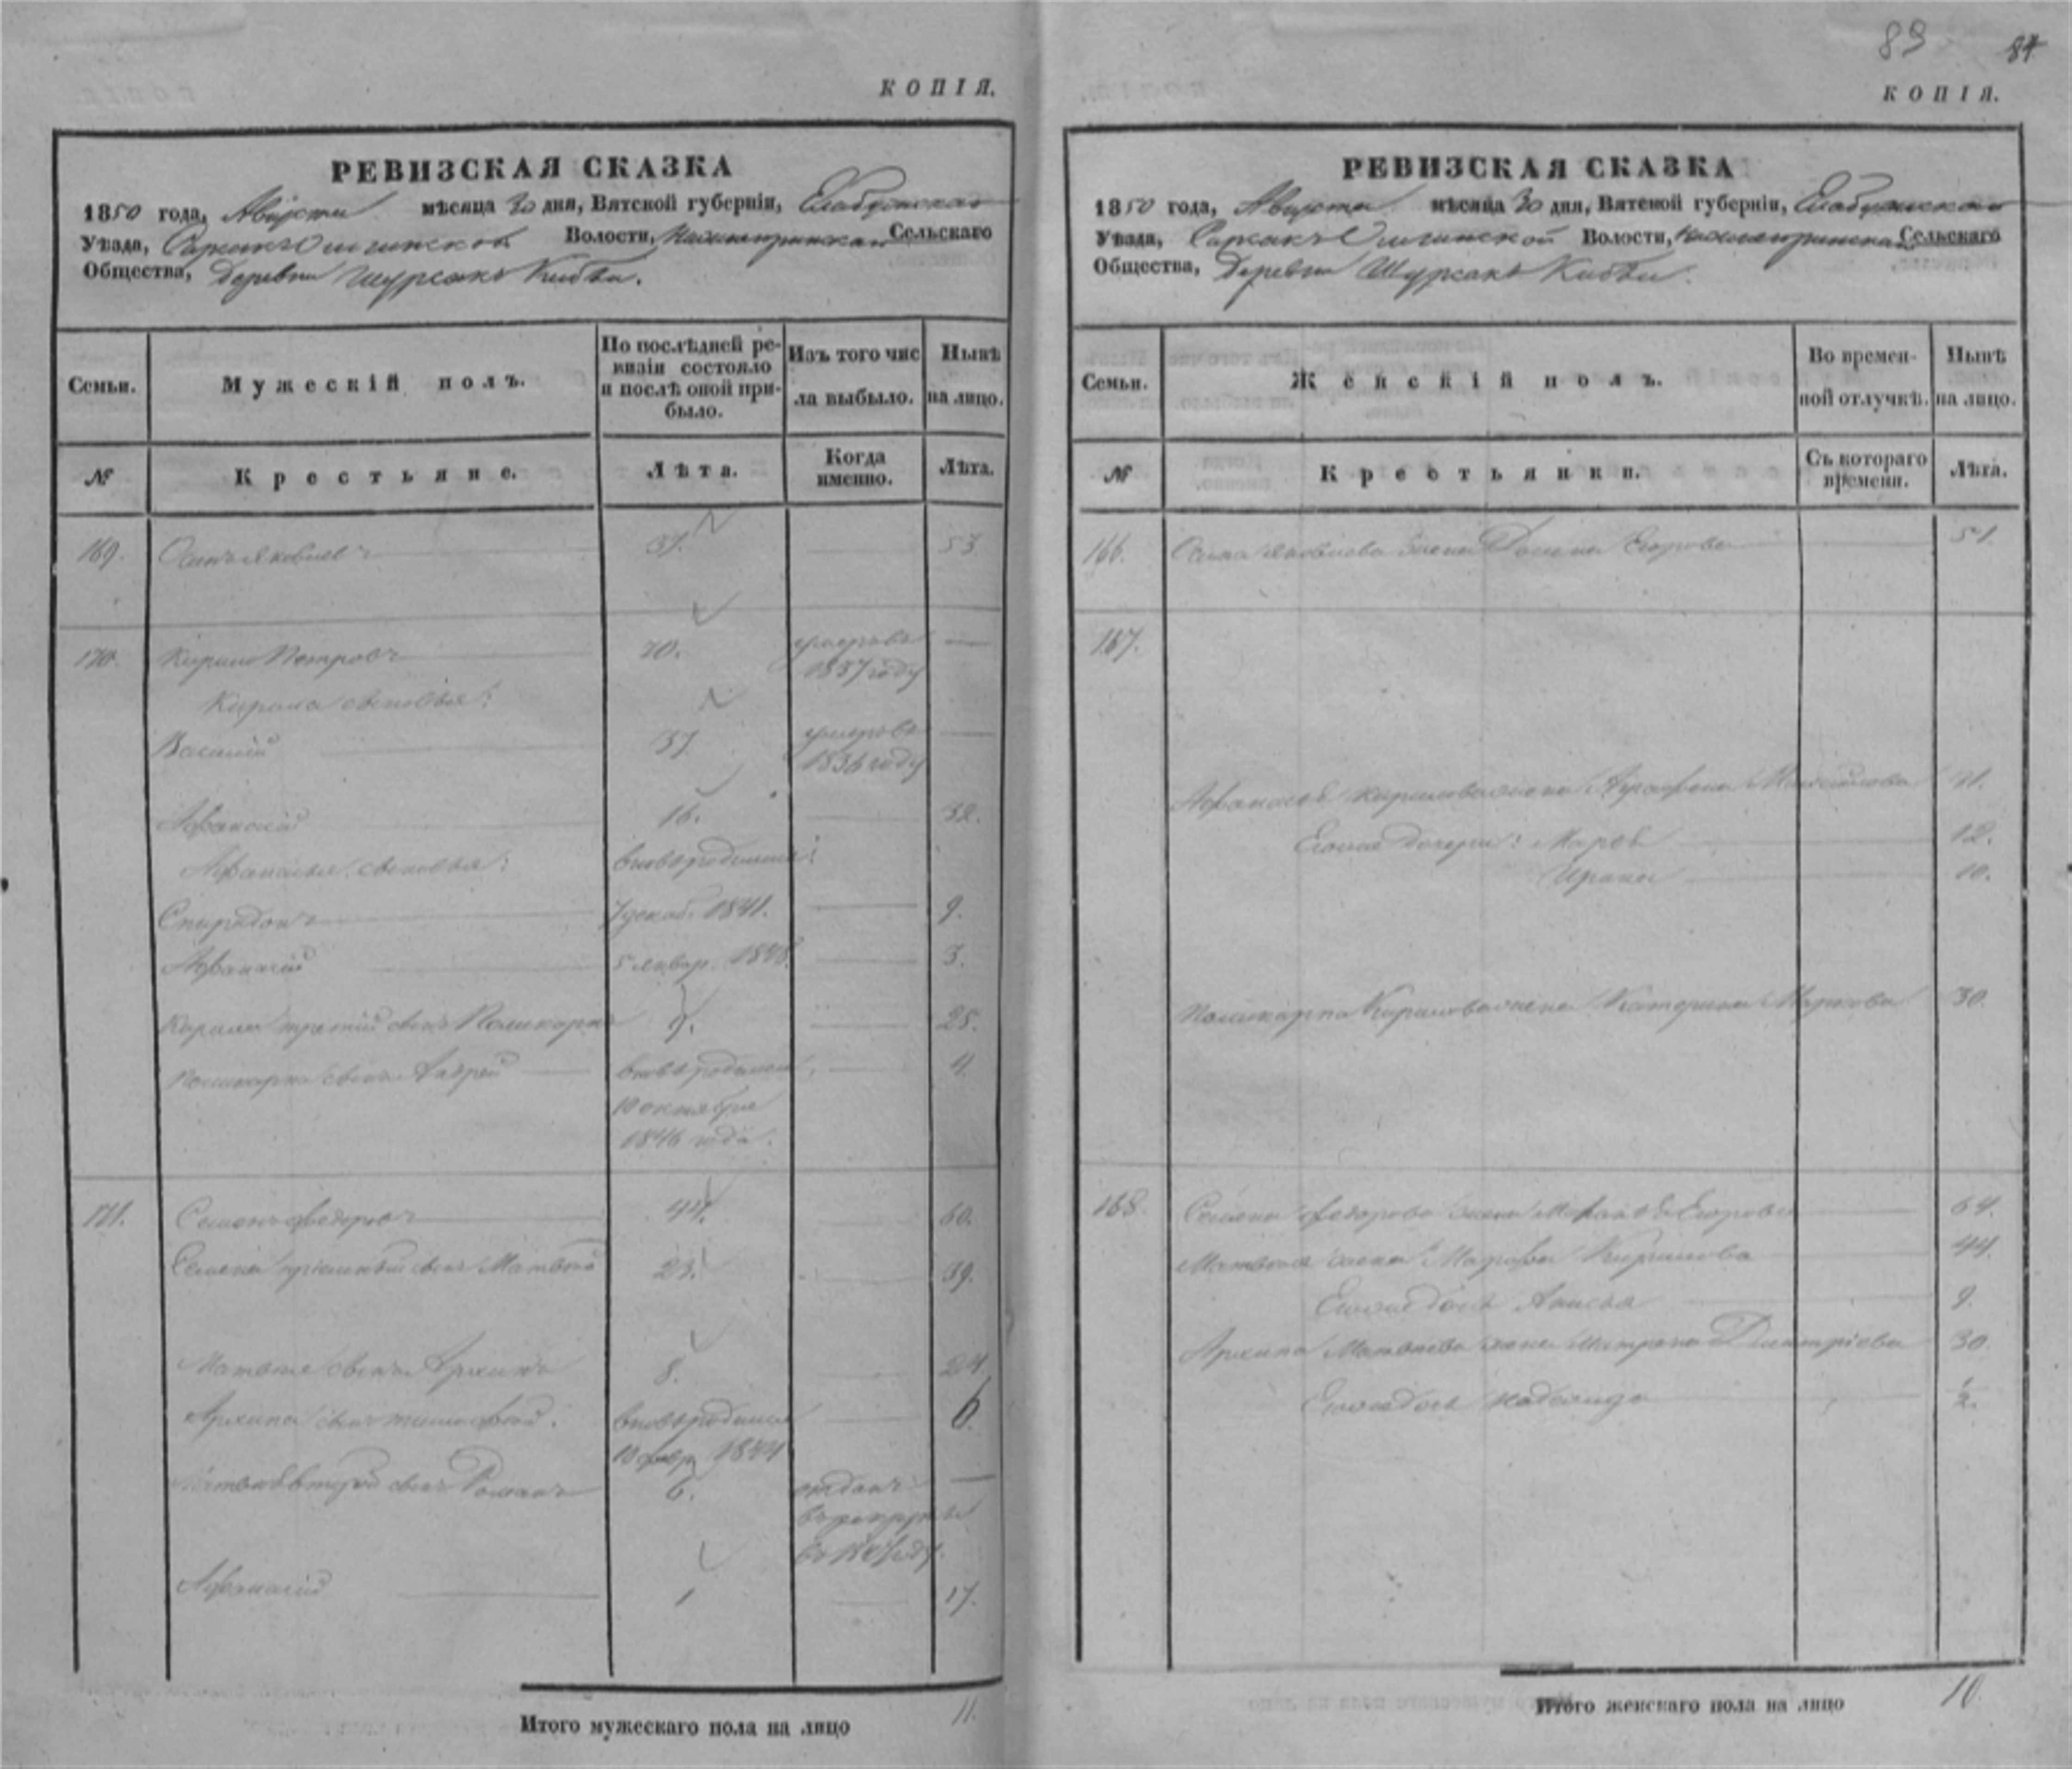 КОПІЯ.
РЕВИЗСКАЯ СКАЗКА
1850 года, Августа мѣсяца 30 дня, Вятской губерніи, Елабужскаго
Уѣзда, Волости, Сельскаго
Общества, Деревни Шурсакъ Кибьи.
Семьи. Мужескій полъ. По послѣдней ревизіи состояло и послѣ оной прибыло. Изъ того числа выбыло. Нынѣ на лицо.
№ Крестьяне. Лѣта. Когда именно. Лѣта.
169. Яковлевъ 37. 53
170. Кирило Петровъ 70. умеръ въ 1837 году —
Кирила сыновья:
Василій 37. умеръ въ 1836 году
Афанасій 16. 32.
Афанасья сыновья: вновьрожденные:
Спиридонъ 7 декаб. 1841. 9.
Афанасій 5 январ. 1848. 3.
Кирила третій сынъ Поликарпъ 9. 25.
Поликарпа сынъ Андрей вновьрожденный 4.
10 октября
1846 года.
171. Семенъ Федоровъ 44. 60.
Семена пріемный сынъ Матвей 23. 39.
Матвея сынъ Архипъ 8. 24.
Архипа сынъ Тимофей. вновьрожденный 6.
10 февр. 1844
второй сынъ Романъ 6. отданъ —
въ рекруты
въ году.
Афанасій 1 17.
Итого мужескаго пола на лицо 11.
83 84
КОПІЯ.
РЕВИЗСКАЯ СКАЗКА
1850 года, Августа мѣсяца 30 дня, Вятской губерніи, Елабужскаго
Уѣзда, Волости, Сельскаго
Общества, Деревни Шурсакъ Кибьи.
Семьи. Женскій полъ. Во временной отлучкѣ. Нынѣ на лицо.
№ Крестьянки. Съ котораго времени. Лѣта.
166. Яковлева жена Егорова 51.
167.
Афанасья Кирилова жена Аграфена 41.
Егоже дочери: Марѳа 12.
Ирина 10.
Поликарпа Кирилова жена Катерина Маркова 30.
168. Семена Федорова жена Егорова 64.
Матвея жена Марфа Кирилова 44.
Егоже дочь Анисья 9.
Архипа Матвеева жена Матрена Дмитріева 30.
Егоже дочь Надежда ½.
Итого женскаго пола на лицо 10.